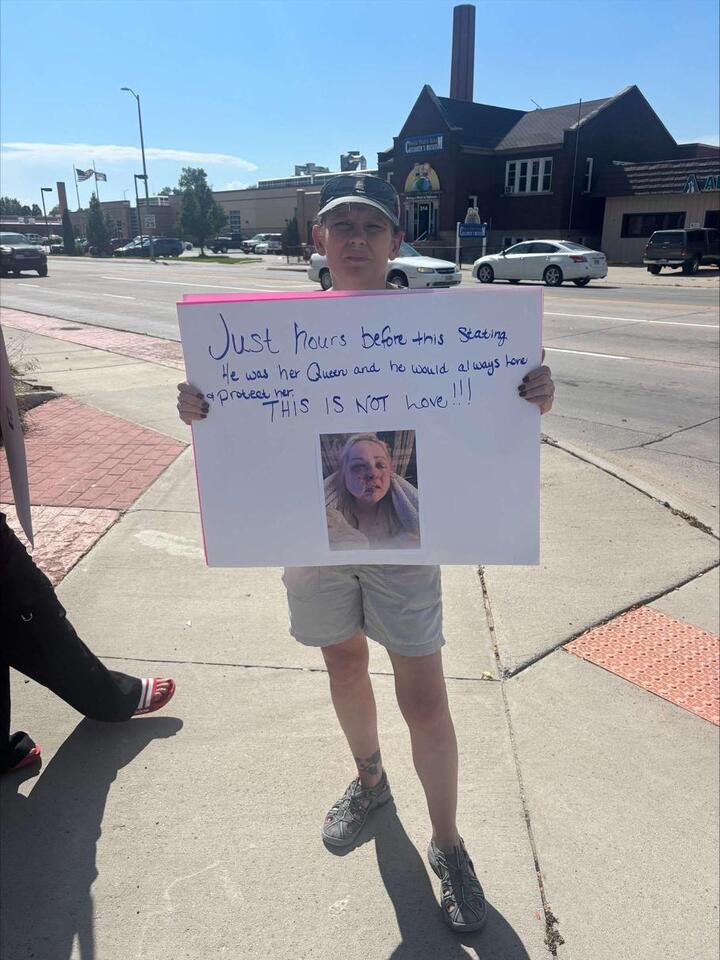 Just hours before this Stating
He was her Queen and he would always love
& Protect her.
THIS IS NOT Love!!!
CHILDREN'S MUSEUM